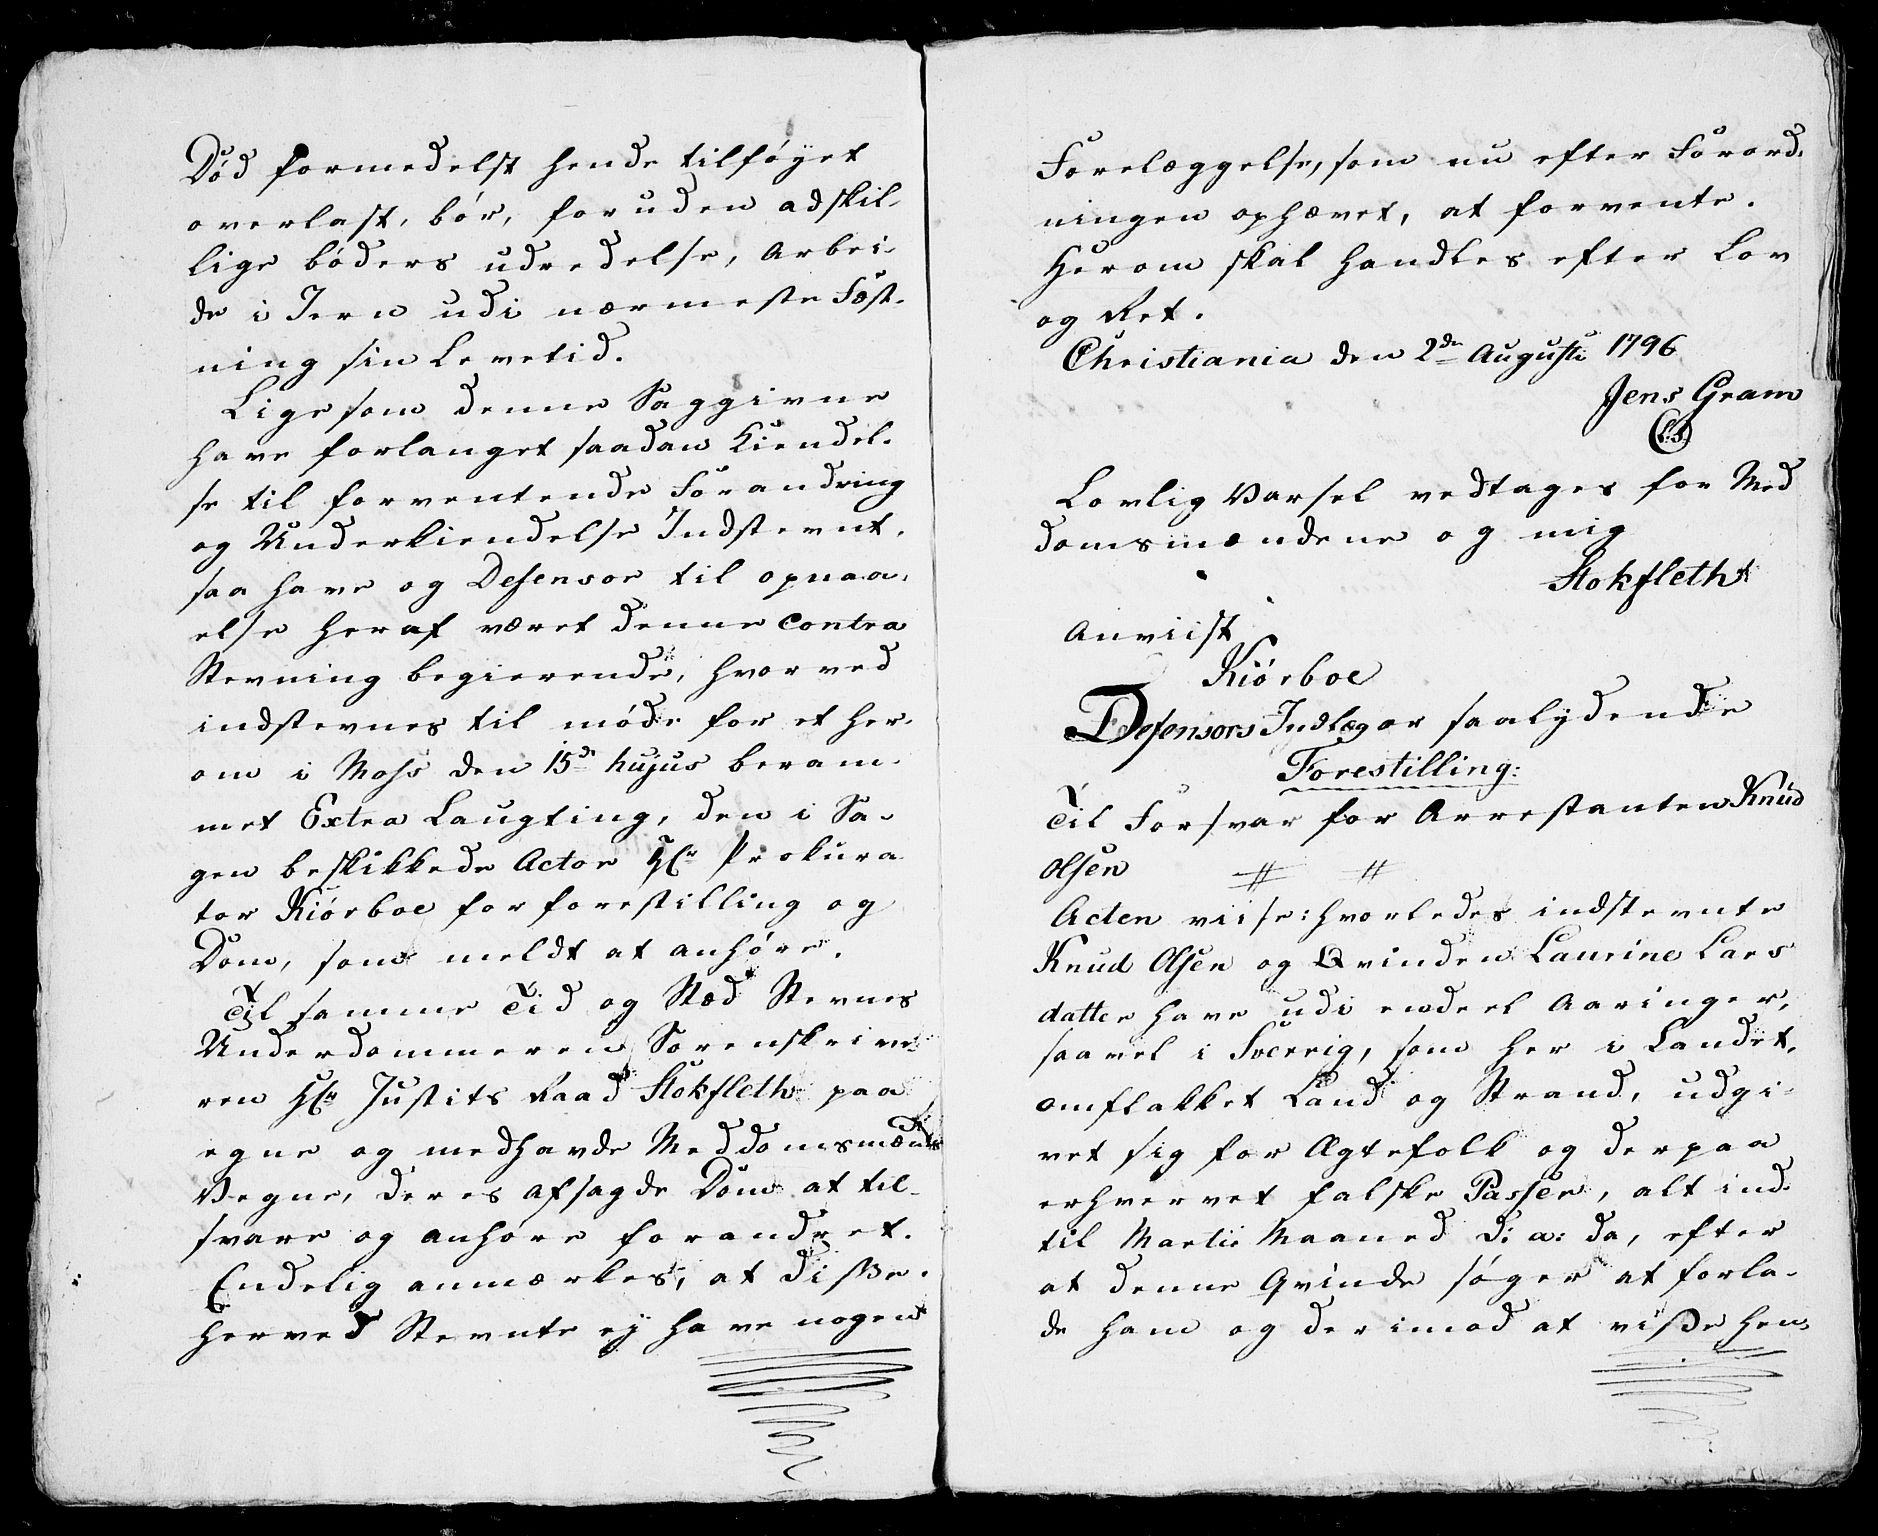 Död formedelst hende tilföÿet
overlast, bör, foruden adskil-
lige böders udredelse, Arbei-
de i Jern udi nærmeste Fæst-
ning sin Levetid.
Ligesom denne Saggivne
have forlanget saadan Kiendel-
se til forventende Forandring
og Underkiendelse Indstevnt,
saa have og Defensor til opnaa-
else heraf været denne Contra
Stevning begierende, hvorved
indstevnes til möde for et her-
om i Moss den 15de hujus beram-
met Extra Laugting, den i Sa-
gen beskikkede Actor Hr Prokura
tor Kiörboe for forestilling og
Dom, som meldt at anhöre.
Til samme Tid og Stæd Stevnes
Underdommeren Sorenskrive
ren Hr Justits Raad Stokfleth paa
egne og medhavde Meddomsmænds
Vegne, deres afsagde Dom at til-
svare og anhöre forandret.
Endelig anmærkes, at disse
herved Stevnte ej have nogen
Forelæggelse, som nu efter Forord-
ningen ophævet, at forvente.
Herom skal handles efter Lov
og Ret.
Christiania den 2de Augusti 1796
Jens Gram
(L.S.)
Lovlig Varsel vedtages for Med
domsmændene og mig
Stokfleth
Anviist
Kiörboe
Defensors Indlæg er saalydende
Forestilling:
Til Forsvar for Arrestanten Knud
Olsen
Acten viise: hvorledes indstevnte
Knud Olsen og Qvinden Laurine Lars
datter have udi endeel Aaringer,
saavel i Sverrig, som her i Landet,
omflakket Land og Strand, udgi-
vet sig for Ægtefolk og derpaa
erhvervet falske Passer, alt ind-
til Martii Maaned d: a: da, efter
at denne Qvinde söger at forla-
de ham og derimod at visse hen-